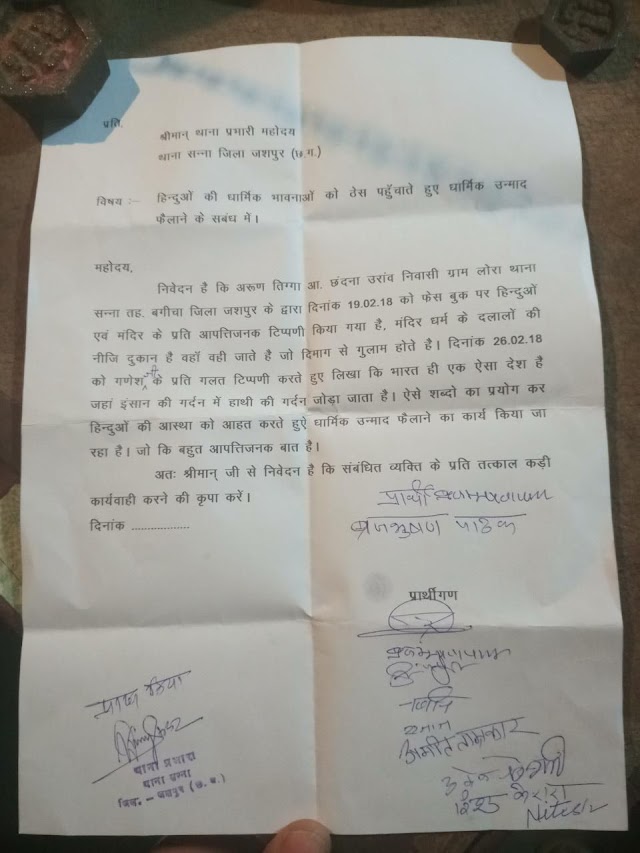 प्रति,
श्रीमान् थाना प्रभारी महोदय
थाना सन्ना जिला जशपुर (छ.ग.)
विषय :- हिन्दुओं की धार्मिक भावनाओं को ठेस पहुँचाते हुए धार्मिक उन्माद
फैलाने के सबंध में।
महोदय,
निवेदन है कि अरूण तिग्गा आ. छंदना उरांव निवासी ग्राम लोरा थाना
सन्ना तह. बगीचा जिला जशपुर के द्वारा दिनांक 19.02.18 को फेस बुक पर हिन्दुओं
एवं मंदिर के प्रति आपत्तिजनक टिप्पणी किया गया है, मंदिर धर्म के दलालों की
नीजि दुकान है वहाँ वही जाते है जो दिमाग से गुलाम होते है। दिनांक 26.02.18
को गणेश जी के प्रति गलत टिप्पणी करते हुए लिखा कि भारत ही एक ऐसा देश है
जहां इंसान की गर्दन में हाथी की गर्दन जोड़ा जाता है। ऐसे शब्दो का प्रयोग कर
हिन्दुओं की आस्था को आहत करते हुऐ धार्मिक उन्माद फैलाने का कार्य किया जा
रहा है। जो कि बहुत आपत्तिजनक बात है।
अतः श्रीमान् जी से निवेदन है कि संबंधित व्यक्ति के प्रति तत्काल कड़ी
कार्यवाही करने की कृपा करें।
प्रार्थी
दिनांक .................
ब्रजभुषण पाठक
प्रार्थीगण
अमीत ताम्रकार
थाना प्रभारी
थाना सन्ना
जिला - जशपुर (छ.ग.)
Nitesh